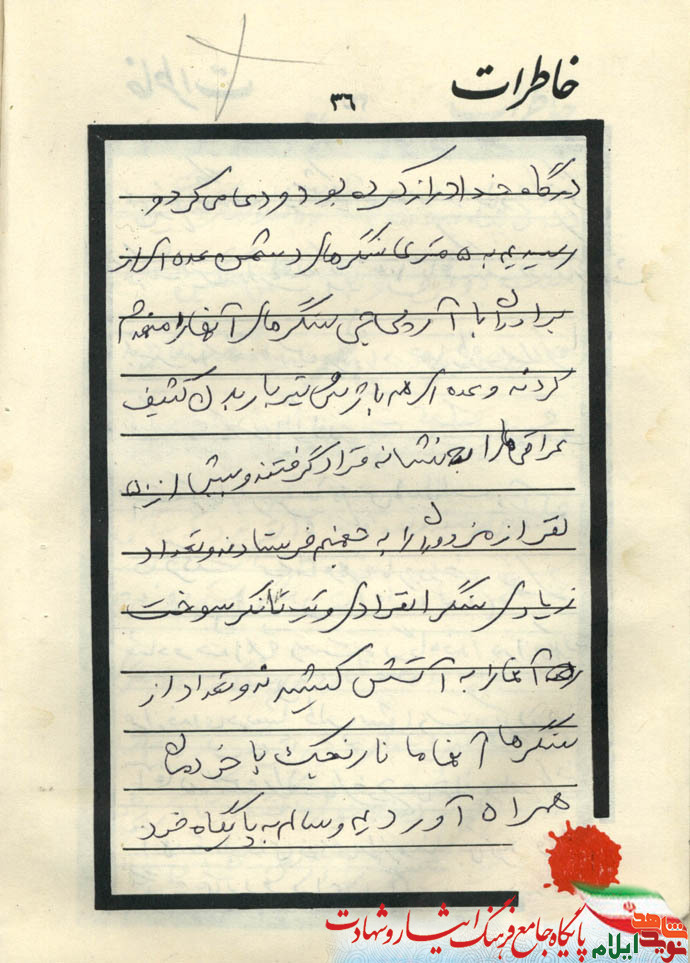 خاطرات
۳۶
درگاه خدا دراز کرده بود و دعا می کرد و
رسیدیم به ۵ متری سنگرهای دشمن عده ای از
برادران با آرپی جی سنگرهای آنها را منهدم
کردند و عده ای هم با ژسه تیربار بدن کثیف
عراقی ها را به نشانه قرار گرفتند و بیش از ۵۰
نفر از مزدوران را به جهنم فرستادند و تعداد
زیادی سنگر انفرادی و تانکر سوخت
آنها را به آتش کشیدند و تعداد از
سنگرها آنها ما نارنجک با خودمان
همراه آوردیم و سالم به پایگاه خود
پایگاه جامع فرهنگ ایثار و شهادت
نوید شاهد ایلام